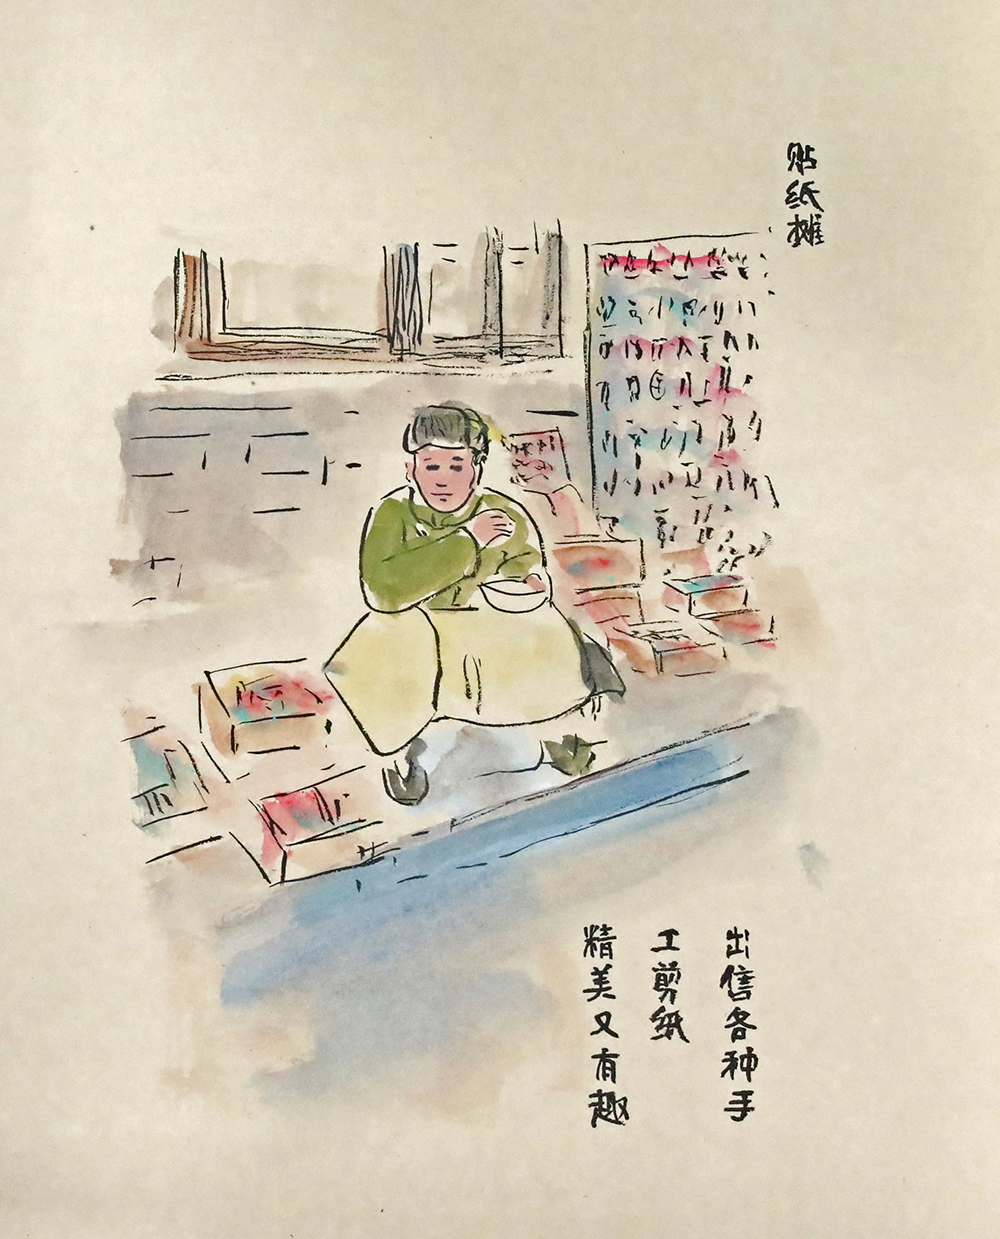 贴纸摊
出售各种手
工剪纸
精美又有趣